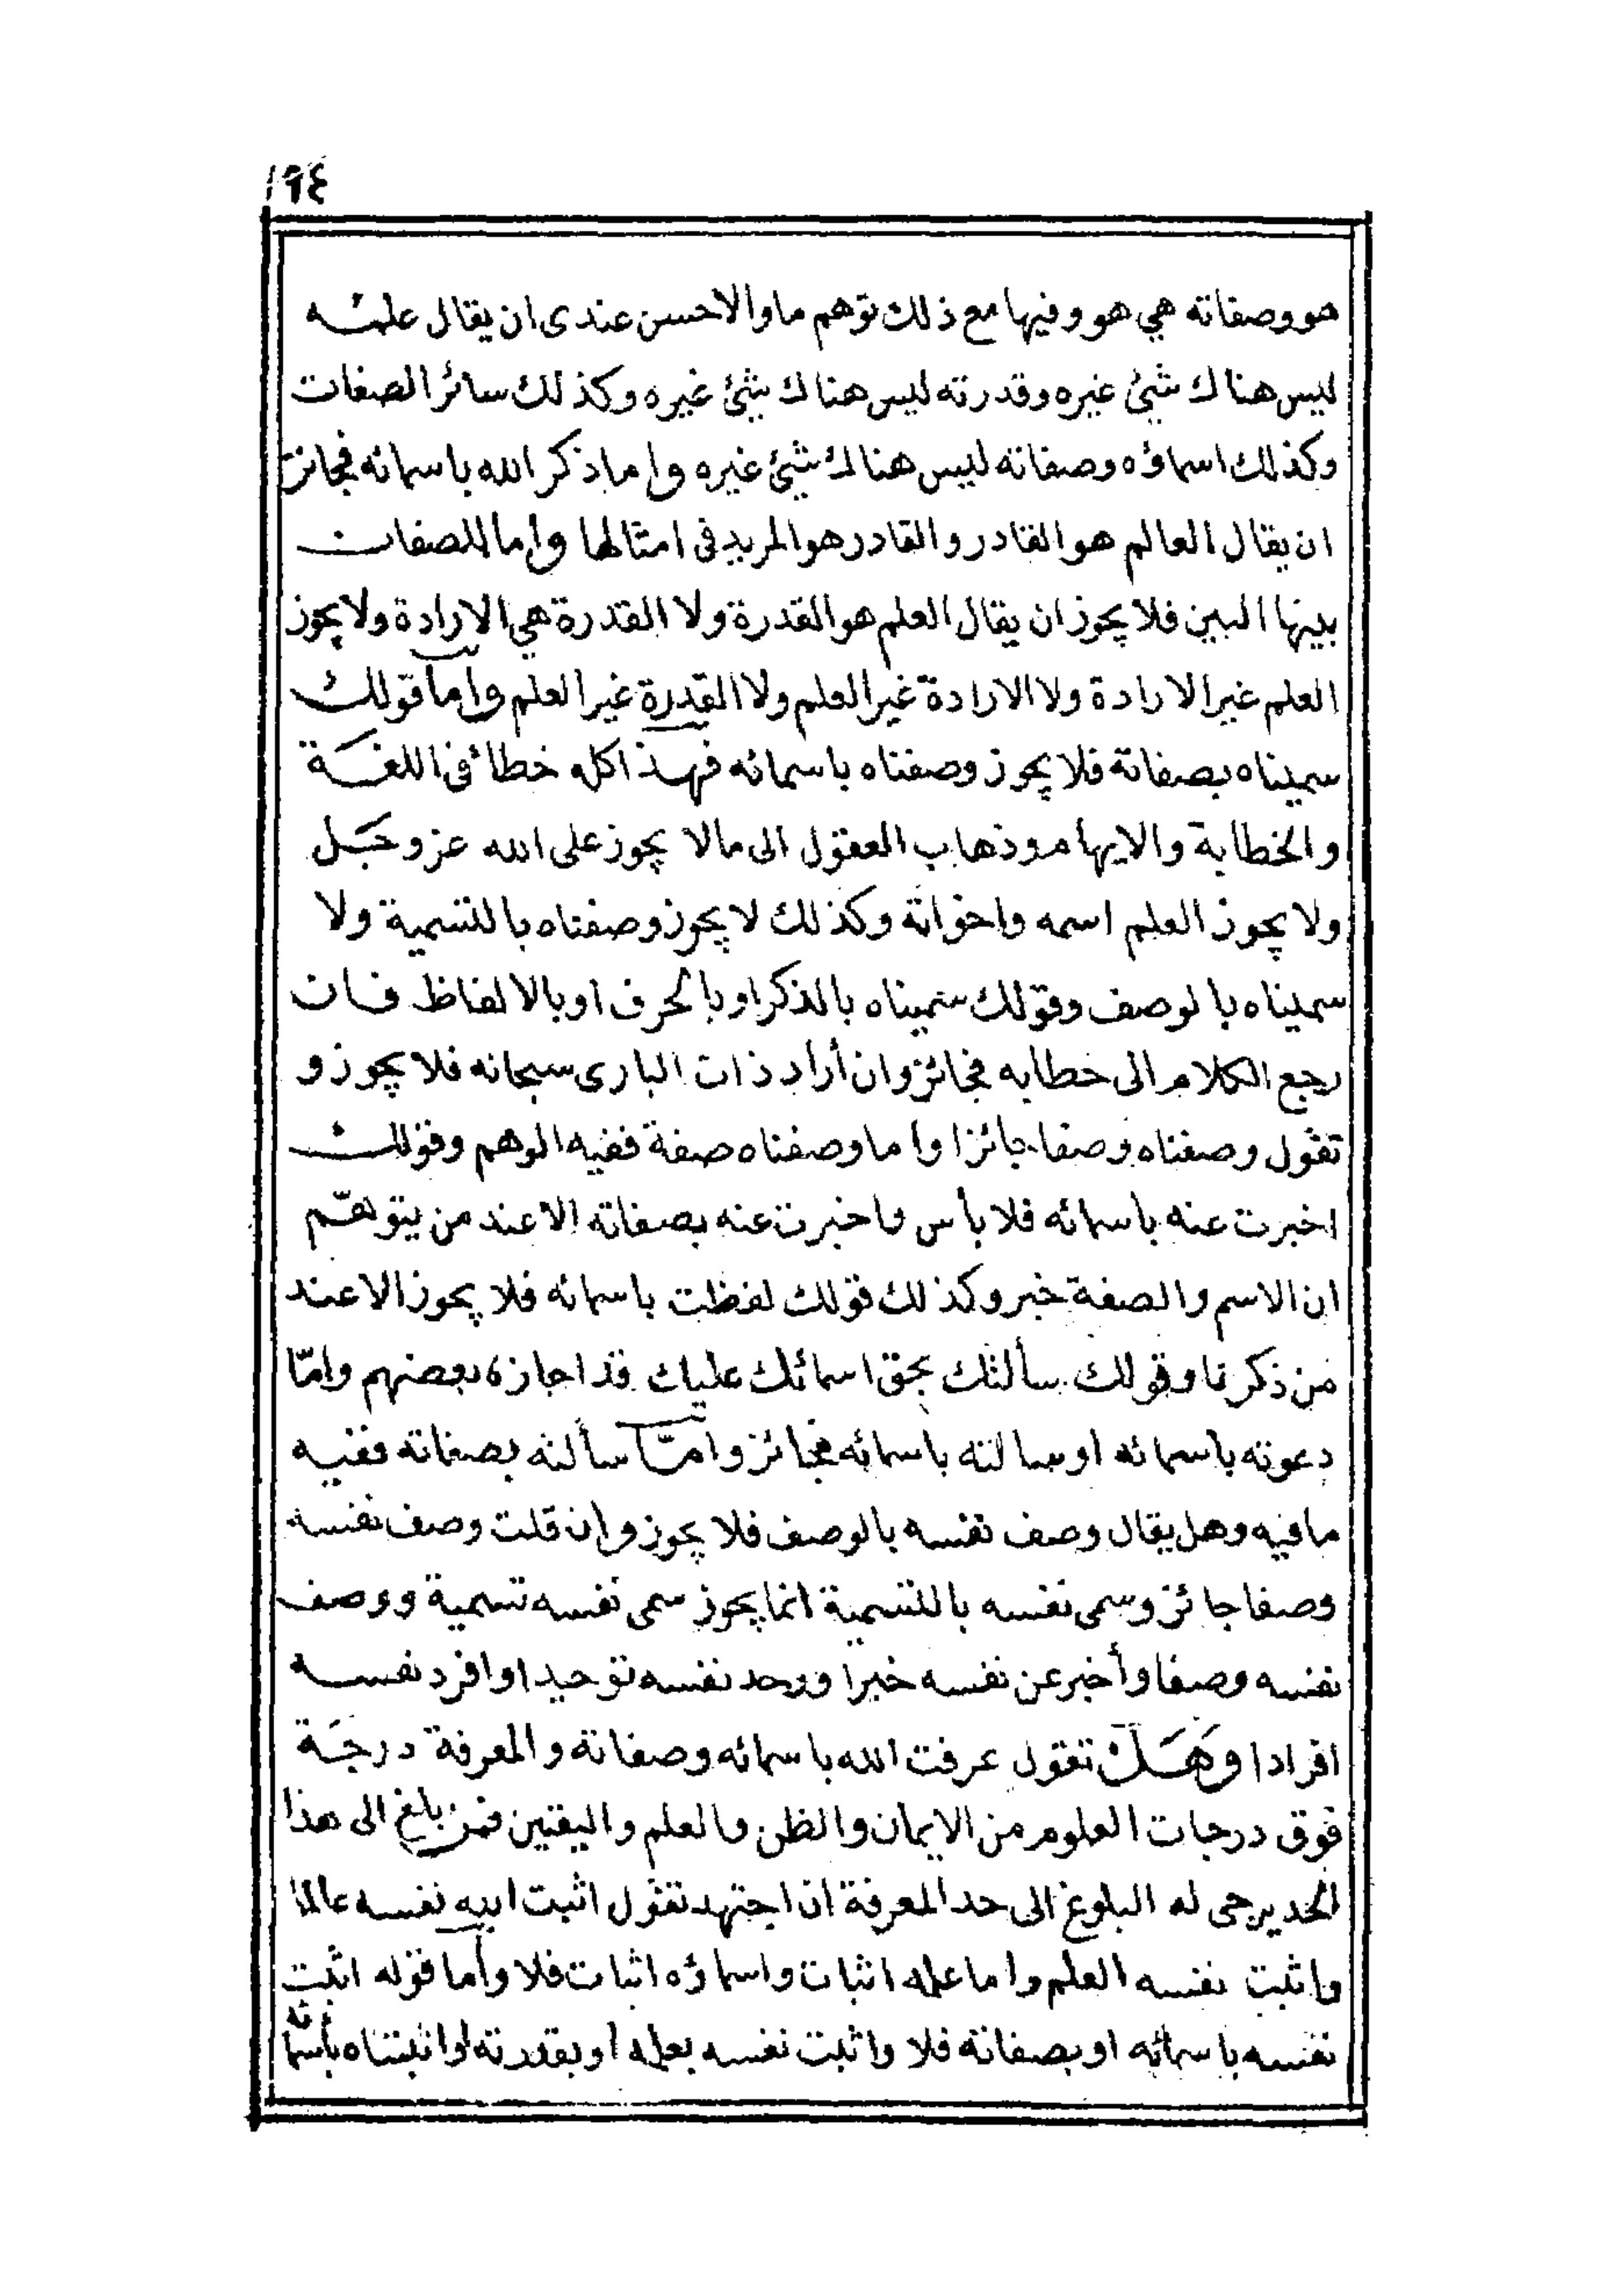 ١٩٤
هو وصفاته هي هو وفيها مع ذلك توهم ما والاحسن عندى ان يقال علمه
ليس هناك شئ غيره وقدرته ليس هناك شئ غيره وكذلك سائر الصفات
وكذلك اسماؤه وصفاته ليس هناك شئ غيره واما ذكر الله باسمائه فجائز
ان يقال العالم هو القادر والقادر هو المريد فى امثالها واما للصفات
بينها البين فلا يجوز ان يقال العلم هو القدرة ولا القدرة هي الارادة ولا يجوز
العلم غير الارادة ولا الارادة غير العلم ولا القدرة غير العلم واما قولك
سميناه بصفاته فلا يجوز وصفناه باسمائه فهذا كله خطأ فى اللغة
والخطابة والايهام وذهاب العقول الى مالا يجوز على الله عز وجل
ولا يجوز العلم اسمه واخواته وكذلك لا يجوز وصفناه بالتسمية ولا
سميناه بالوصف وقولك سميناه بالذكر او بالحرف او بالالفاظ فان
رجع الكلام الى خطابه فجائز وان أراد ذات البارى سبحانه فلا يجوز و
تقول وصفناه وصفا جائزا واما وصفناه صفة ففيه الوهم وقولك
اخبرت عنه باسمائه فلا بأس واخبرت عنه بصفاته الا عند من يتوهّم
ان الاسم والصفة خبر وكذلك قولك لفظت باسمائه فلا يجوز الا عند
من ذكرنا وقولك سألتك بحق اسمائك عليك قد اجازه بعضهم وامّا
دعوته باسمائه او سالته باسمائه فجائز وامّا سألته بصفاته ففيه
مافيه وهل يقال وصف نفسه بالوصف فلا يجوز وان قلت وصف نفسه
وصفا جائز وسمى نفسه بالتسمية انما يجوز سمى نفسه تسمية ووصف
نفسه وصفا وأخبر عن نفسه خبرا ووحد نفسه توحيدا وافرد نفسه
افرادا وَهَلْ تقول عرفت الله باسمائه وصفاته والمعرفة درجَة
فوق درجات العلوم من الايمان والظن والعلم واليقين فمن بلغ الى هذا
الحد يرجى له البلوغ الى حد المعرفة ان اجتهد تقول اثبت نفسه عالما
واثبت نفسه العلم واما علمه اثبات واسماؤه اثبات فلا وأما قوله اثبت
نفسه باسمائه او بصفاته فلا واثبت نفسه بعلمه أو بقدرته او اثبتناه بأسمائه